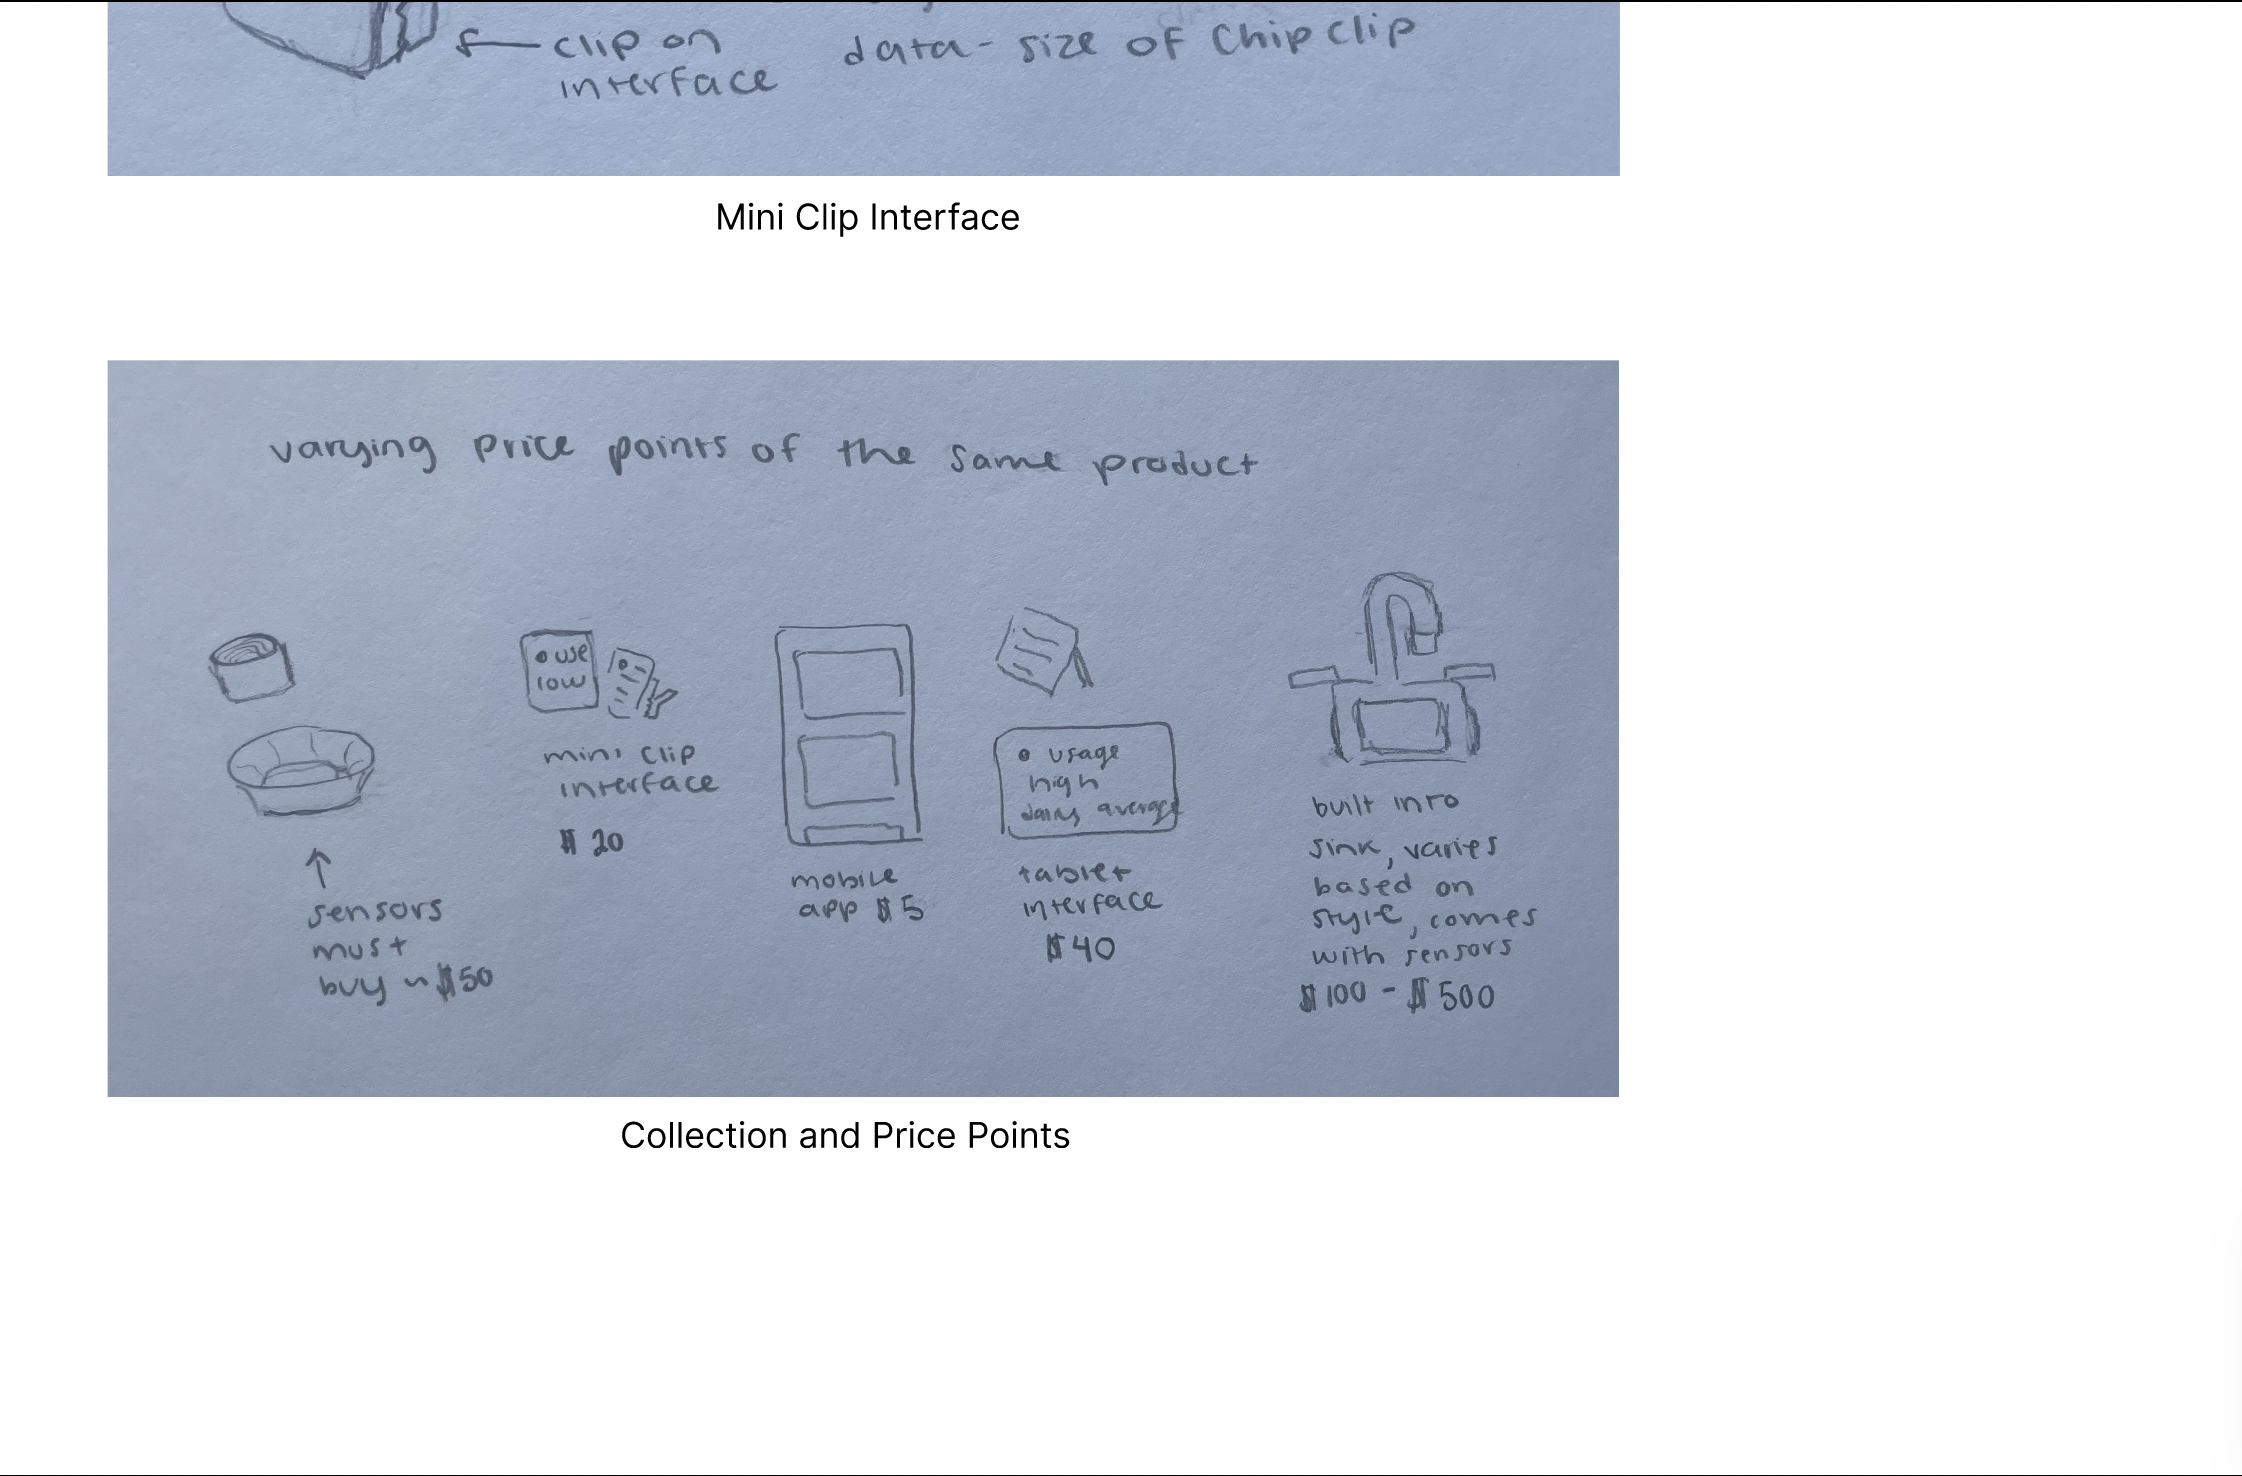 clip on
interface
data - size of Chip clip
Mini Clip Interface
varying price points of the same product
• use
low
mini clip
interface
$ 20
mobile
app $5
• usage
high
daily average
tablet
interface
$40
built into
sink, varies
based on
style, comes
with sensors
$100 - $500
↑
sensors
must
buy ~$50
Collection and Price Points